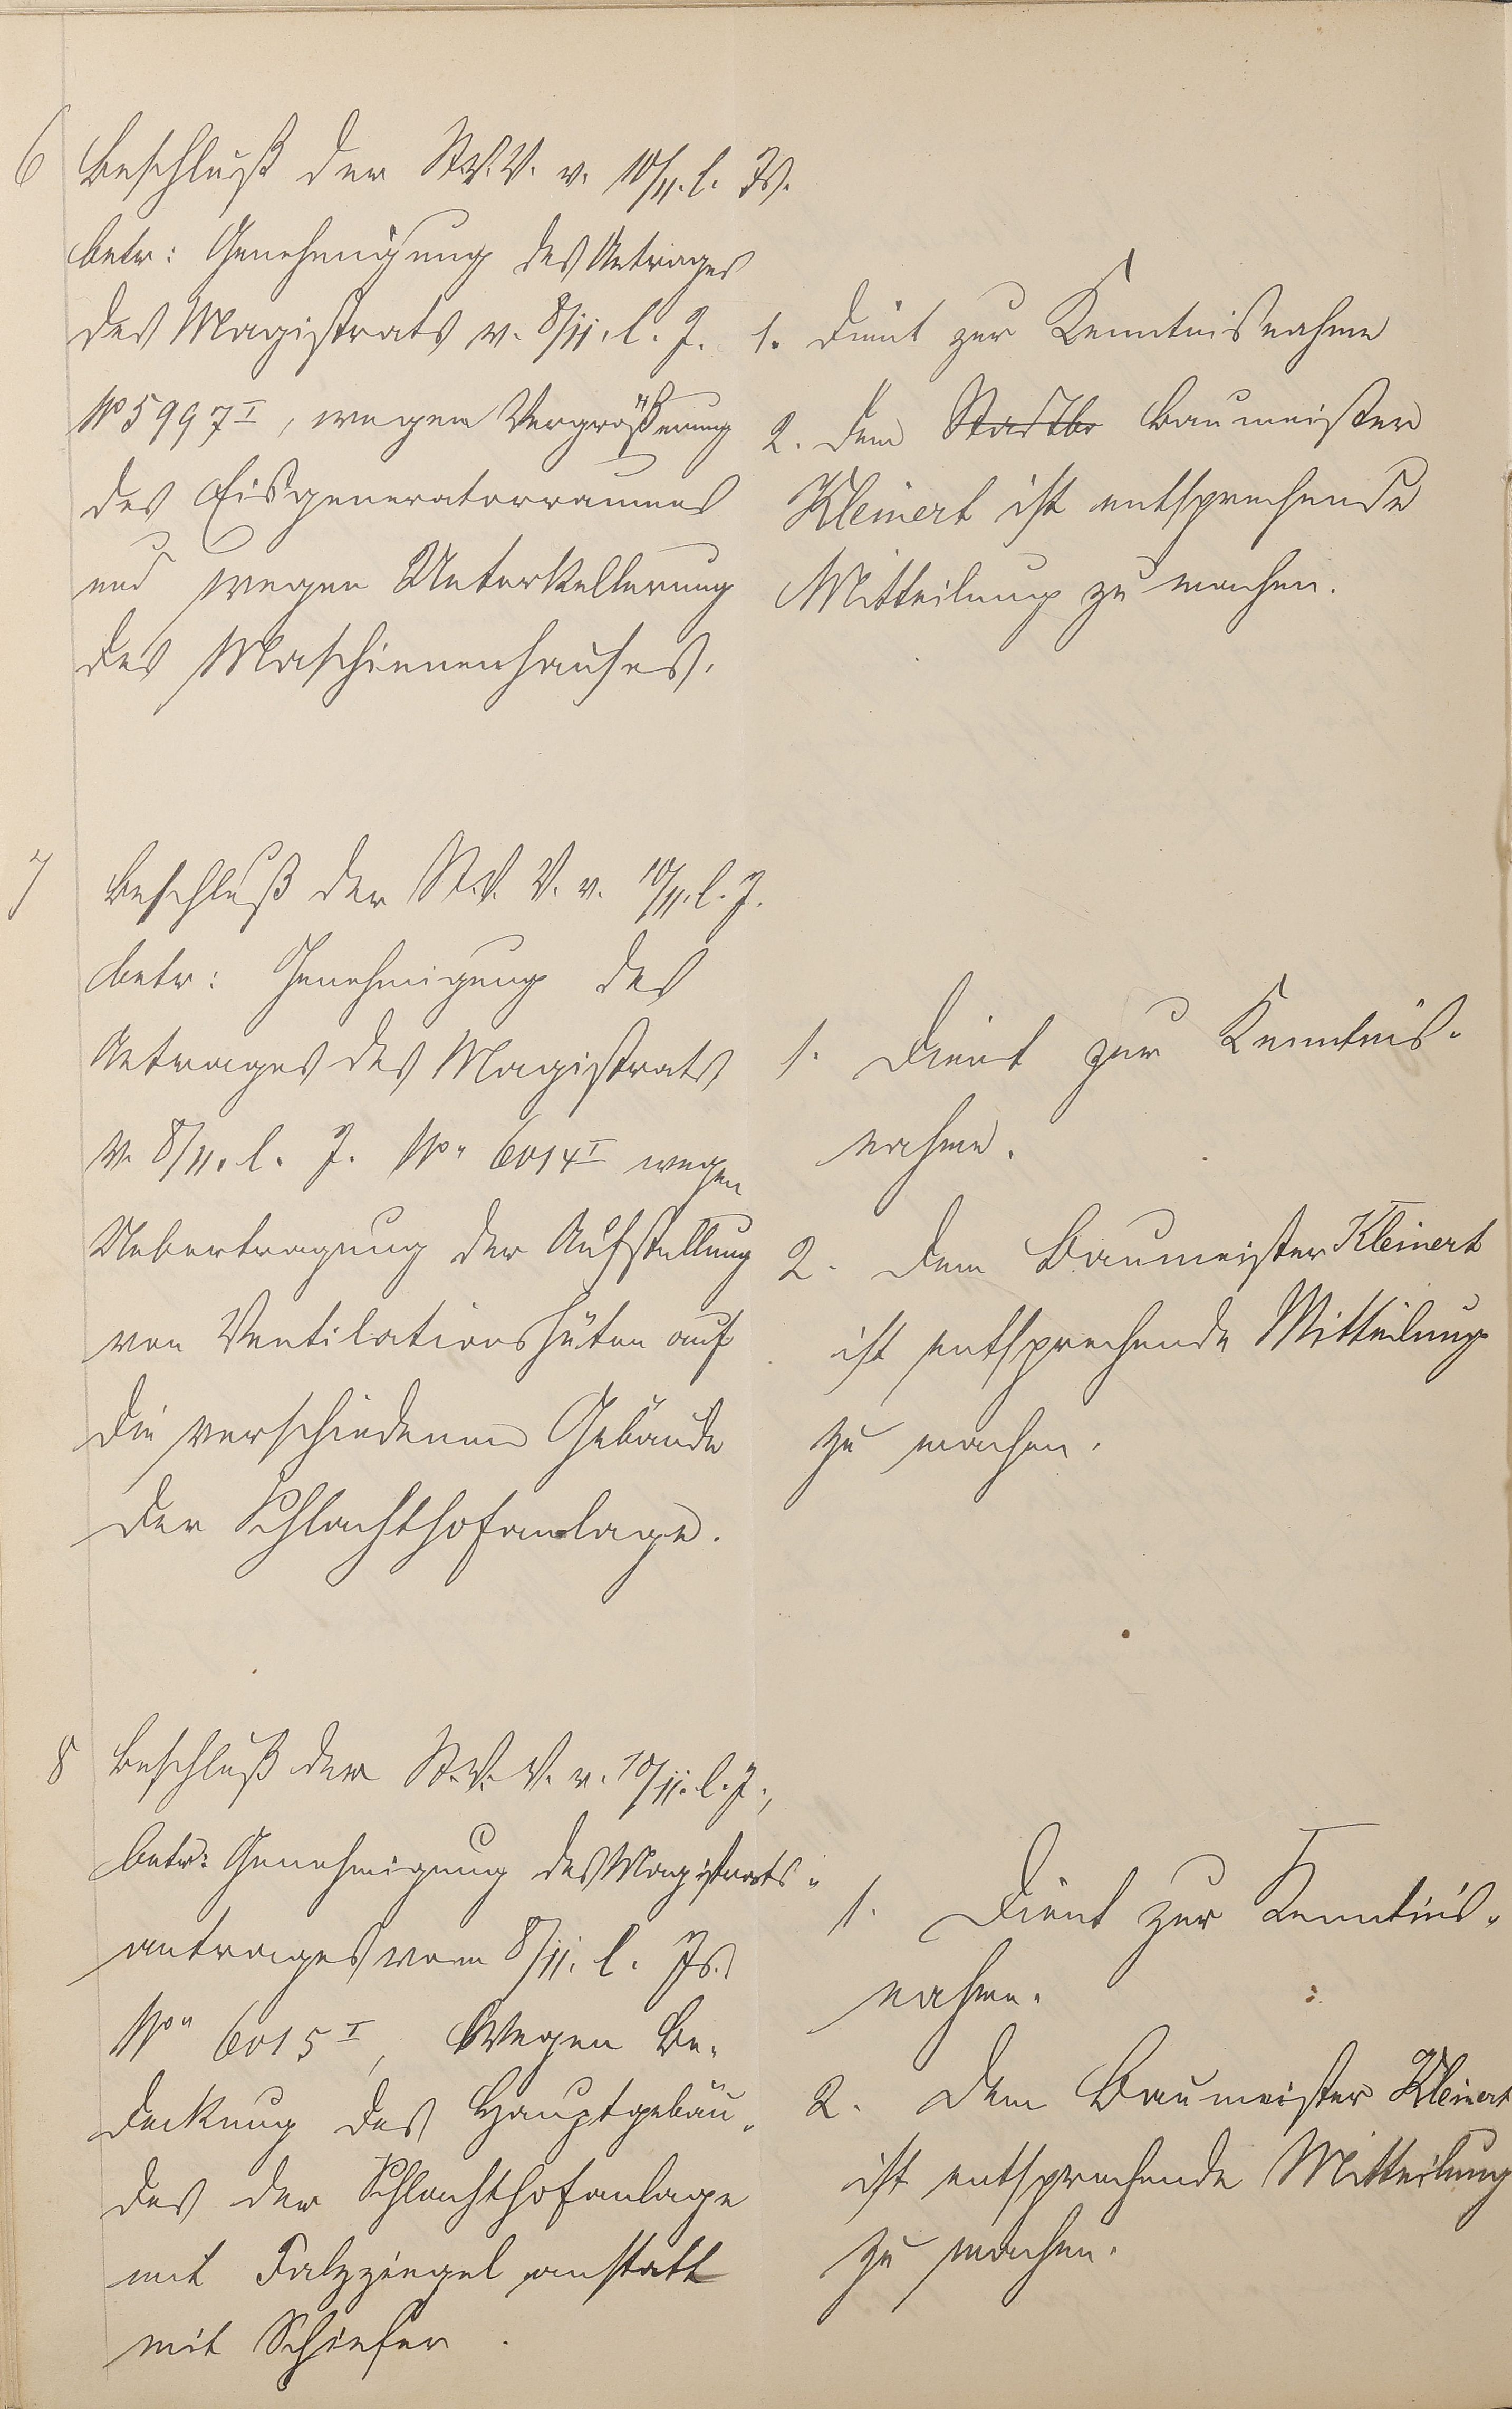 6 Beschluß der St.V.V. v. 10/11. l. Js.
betr: Genehmigung des Antrages
des Magistrats v. 8/11. l. J.
No 5997 I, wegen Vergrößerung
des Eisgeneratorraumes
und wegen Unterkellerung
des Maschinenhauses.
1. dient zur Kenntnisnahme
2. dem Stadtba Baumeister
Kleinert ist entsprechende
Mitteilung zu machen.
7 Beschluß der St.V.V. v. 10/11. l. J.
betr: Genehmigung des
Antrages des Magistrats
v. 8/11. l. J. No 6014 I wegen
Uebertragung der Aufstellung
von Ventilationshüten auf
die verschiedenen Gebäude
der Schlachthofanlage.
1. Dient zur Kenntnis-
nahme.
2. Dem Baumeister Kleinert
ist entsprechende Mitteilung
zu machen.
8 Beschluß der St.V.V. v. 10/11. l. J.,
betr: Genehmigung des Magistrats-
antrages vom 8/11. l. Js.
No 6015 I, Wegen Be-
deckung des Hauptgebäu-
des der Schlachthofanlage
mit Falzziegel anstatt
mit Schiefer.
1. Dient zur Kenntnis-
nahme.
2. Dem Baumeister Kleinert
ist entsprechende Mitteilung
zu machen.